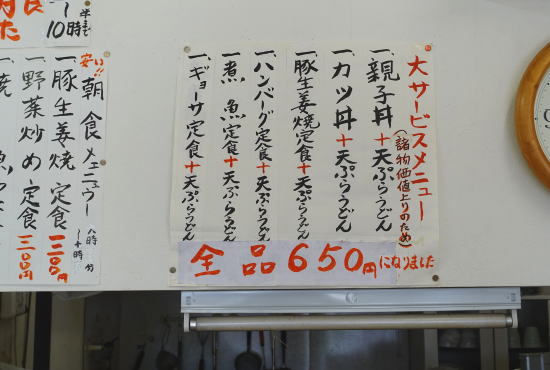 大サービスメニュー
（諸物価値上りのため）
一、親子丼＋天ぷらうどん
一、カツ丼＋天ぷらうどん
一、豚生姜焼定食＋天ぷらうどん
一、ハンバーグ定食＋天ぷらうどん
一、煮魚定食＋天ぷらうどん
一、ギョーサ定食＋天ぷらうどん
全品650円になりました
半まで
〜10時
安い!!朝食メニュウー
一豚生姜焼定食
一野菜炒め定食